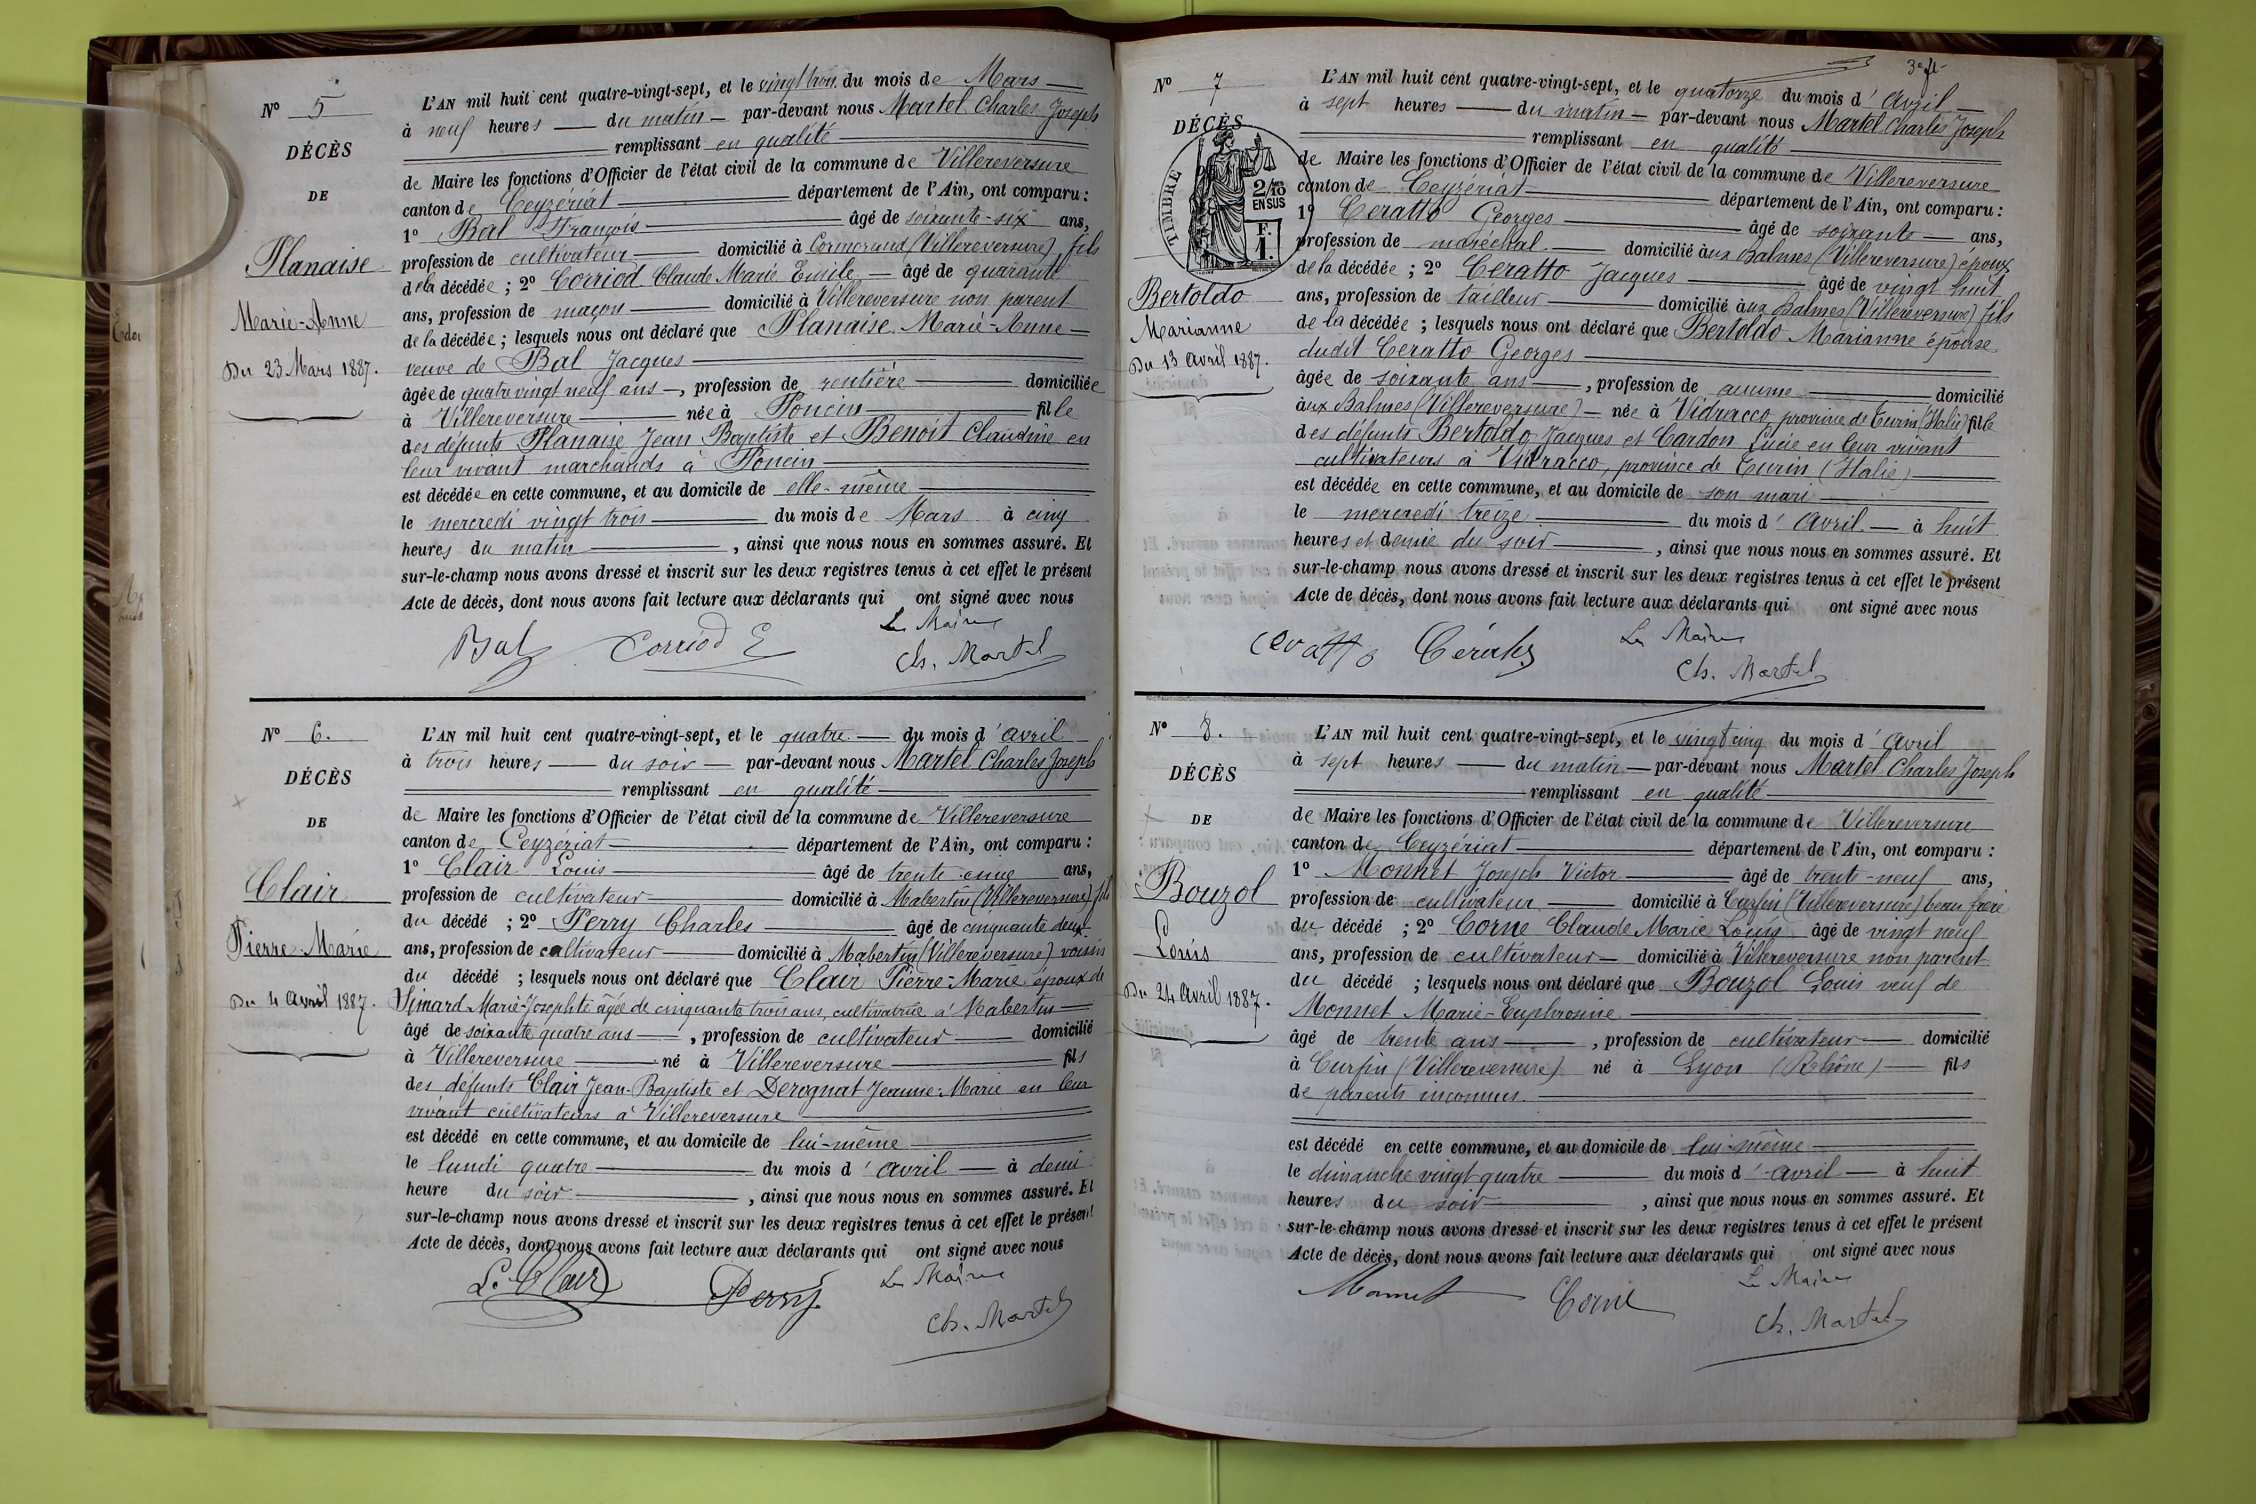 N° 5
DÉCÈS
DE
Planaise
Marie-Anne
Du 23 Mars 1887.
L'AN mil huit cent quatre-vingt-sept, et le vingt trois du mois de Mars
à neuf heures du matin par-devant nous Martel Charles Joseph
remplissant en qualité
de Maire les fonctions d'Officier de l'état civil de la commune de Villereversure
canton de Ceyzériat département de l'Ain, ont comparu :
1° Bal François âgé de soixante-six ans,
profession de cultivateur domicilié à Cormorand (Villereversure) fils
de la décédée ; 2° Corriod Claude Marie Emile âgé de quarante
ans, profession de maçon domicilié à Villereversure non parent
de la décédée ; lesquels nous ont déclaré que Planaise Marie-Anne
veuve de Bal Jacques
âgée de quatre vingt neuf ans, profession de rentière domiciliée
à Villereversure née à Poncin fille
des défunts Planaise Jean Baptiste et Benoit Claudine en
leur vivant marchands à Poncin
est décédée en cette commune, et au domicile de elle-même
le mercredi vingt trois du mois de Mars à cinq
heures du matin, ainsi que nous nous en sommes assuré. Et
sur-le-champ nous avons dressé et inscrit sur les deux registres tenus à cet effet le présent
Acte de décès, dont nous avons fait lecture aux déclarants qui ont signé avec nous
Bal Corriod E Le Maire
Ch. Martel
N° 6.
DÉCÈS
DE
Clair
Pierre-Marie
Du 4 Avril 1887.
L'AN mil huit cent quatre-vingt-sept, et le quatre du mois d'avril
à trois heures du soir par-devant nous Martel Charles Joseph
remplissant en qualité
de Maire les fonctions d'Officier de l'état civil de la commune de Villereversure
canton de Ceyzériat département de l'Ain, ont comparu :
1° Clair Louis âgé de trente cinq ans,
profession de cultivateur domicilié à Mabertin (Villereversure) fils
du décédé ; 2° Perry Charles âgé de cinquante deux
ans, profession de cultivateur domicilié à Mabertin (Villereversure) voisin
du décédé ; lesquels nous ont déclaré que Clair Pierre-Marie époux de
Marie-Josephte âgée de cinquante trois ans, cultivatrice à Mabertin
âgé de soixante quatre ans, profession de cultivateur domicilié
à Villereversure né à Villereversure fils
des défunts Clair Jean-Baptiste et Derognat Jeanne-Marie en leur
vivant cultivateurs à Villereversure
est décédé en cette commune, et au domicile de lui-même
le lundi quatre du mois d'avril à demi
heure du soir, ainsi que nous nous en sommes assuré. Et
sur-le-champ nous avons dressé et inscrit sur les deux registres tenus à cet effet le présent
Acte de décès, dont nous avons fait lecture aux déclarants qui ont signé avec nous
L. Clair Perry Le Maire
Ch. Martel
N° 7
DÉCÈS
TIMBRE
2/10
EN SUS
F.
1.
Bertoldo
Marianne
Du 13 avril 1887.
L'AN mil huit cent quatre-vingt-sept, et le quatorze du mois d'avril
à sept heures du matin par-devant nous Martel Charles Joseph
remplissant en qualité
de Maire les fonctions d'Officier de l'état civil de la commune de Villereversure
canton de Ceyzériat département de l'Ain, ont comparu :
1° Ceratto Georges âgé de soixante ans,
profession de maréchal domicilié aux Balmes (Villereversure) époux
de la décédée ; 2° Ceratto Jacques âgé de vingt huit
ans, profession de tailleur domicilié aux Balmes (Villereversure) fils
de la décédée ; lesquels nous ont déclaré que Bertoldo Marianne épouse
dudit Ceratto Georges
âgée de soixante ans, profession de aucune domicilié
aux Balmes (Villereversure) née à Vidracco province de Turin (Italie) fille
des défunts Bertoldo Jacques et Cardon Lucie en leur vivant
cultivateurs à Vidracco, province de Turin (Italie)
est décédée en cette commune, et au domicile de son mari
le mercredi treize du mois d'avril à huit
heures et demie du soir, ainsi que nous nous en sommes assuré. Et
sur-le-champ nous avons dressé et inscrit sur les deux registres tenus à cet effet le présent
Acte de décès, dont nous avons fait lecture aux déclarants qui ont signé avec nous
Ceratto Le Maire
Ch. Martel
N° 8.
DÉCÈS
DE
Bouzol
Louis
Du 24 Avril 1887.
L'AN mil huit cent quatre-vingt-sept, et le vingt cinq du mois d'avril
à sept heures du matin par-devant nous Martel Charles Joseph
remplissant en qualité
de Maire les fonctions d'Officier de l'état civil de la commune de Villereversure
canton de Ceyzériat département de l'Ain, ont comparu :
1° Monnet Joseph Victor âgé de trente-neuf ans,
profession de cultivateur domicilié à Curfin (Villereversure) beau frère
du décédé ; 2° Corne Claude Marie Louis âgé de vingt neuf
ans, profession de cultivateur domicilié à Villereversure non parent
du décédé ; lesquels nous ont déclaré que Bouzol Louis veuf de
Monnet Marie-Euphrosine
âgé de trente ans, profession de cultivateur domicilié
à Curfin (Villereversure) né à Lyon (Rhône) fils
de parents inconnus.
est décédé en cette commune, et au domicile de lui-même
le dimanche vingt quatre du mois d'avril à huit
heures du soir, ainsi que nous nous en sommes assuré. Et
sur-le-champ nous avons dressé et inscrit sur les deux registres tenus à cet effet le présent
Acte de décès, dont nous avons fait lecture aux déclarants qui ont signé avec nous
Monnet Corne Le Maire
Ch. Martel